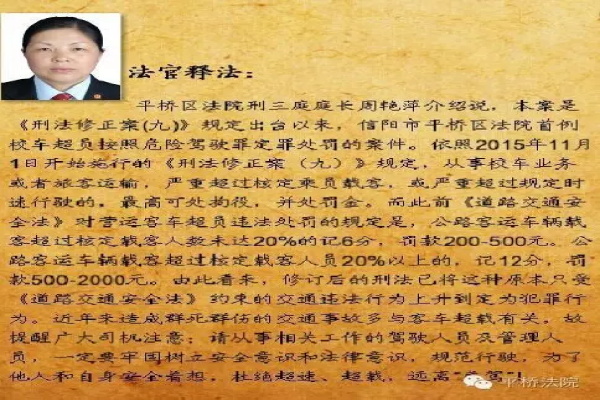 法官释法：
平桥区法院刑三庭庭长周艳萍介绍说，本案是
《刑法修正案(九)》规定出台以来，信阳市平桥区法院首例
校车超员按照危险驾驶罪定罪处罚的案件。依照2015年11月
1日开始施行的《刑法修正案（九）》规定，从事校车业务
或者旅客运输，严重超过核定乘员载客，或严重超过规定时
速行驶的，最高可处拘役，并处罚金。而此前《道路交通安
全法》对营运客车超员违法处罚的规定是，公路客运车辆载
客超过核定载客人数未达20%的记6分，罚款200-500元。公
路客运车辆载客超过核定载客人员20%以上的，记12分，罚
款500-2000元。由此看来，修订后的刑法已将这种原本只受
《道路交通安全法》约束的交通违法行为上升到定为犯罪行
为。近年来造成群死群伤的交通事故多与客车超载有关，故
提醒广大司机注意：请从事相关工作的驾驶人员及管理人
员，一定要牢固树立安全意识和法律意识，规范行驶，为了
他人和自身安全着想，杜绝超速、超载，远离
平桥法院